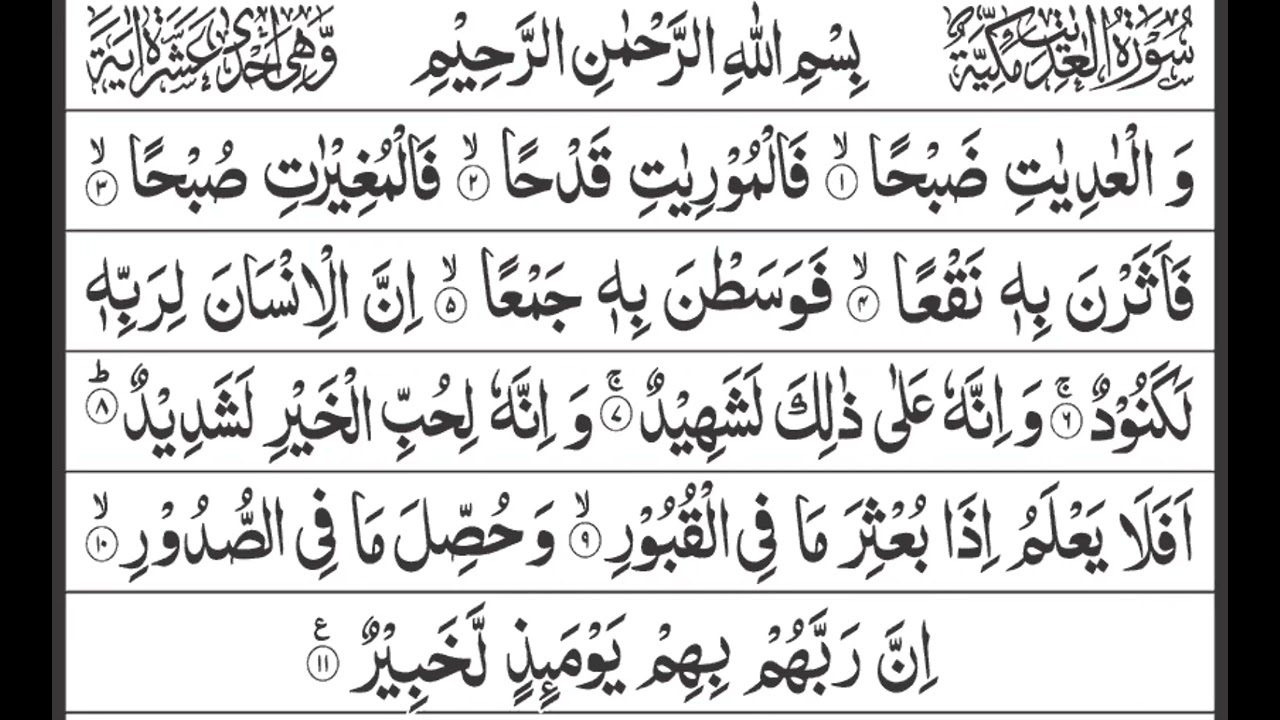 سُوْرَةُ الْعٰدِيٰتِ مَكِّيَّةٌ بِسْمِ اللّٰهِ الرَّحْمٰنِ الرَّحِيْمِ وَّهِىَ اِحْدٰى عَشَرَةَ اٰيَةً
وَ الْعٰدِيٰتِ ضَبْحًا ۙ﴿۱﴾ فَالْمُوْرِيٰتِ قَدْحًا ۙ﴿۲﴾ فَالْمُغِيْرٰتِ صُبْحًا ۙ﴿۳﴾
فَاَثَرْنَ بِهٖ نَقْعًا ۙ﴿۴﴾ فَوَسَطْنَ بِهٖ جَمْعًا ۙ﴿۵﴾ اِنَّ الْاِنْسَانَ لِرَبِّهٖ
لَكَنُوْدٌ ۚ﴿۶﴾ وَ اِنَّهٗ عَلٰى ذٰلِكَ لَشَهِيْدٌ ۚ﴿۷﴾ وَ اِنَّهٗ لِحُبِّ الْخَيْرِ لَشَدِيْدٌ ؕ﴿۸﴾
اَفَلَا يَعْلَمُ اِذَا بُعْثِرَ مَا فِى الْقُبُوْرِ ۙ﴿۹﴾ وَ حُصِّلَ مَا فِى الصُّدُوْرِ ۙ﴿۱۰﴾
اِنَّ رَبَّهُمْ بِهِمْ يَوْمَىِٕذٍ لَّخَبِيْرٌ ﴿۱۱﴾ ع